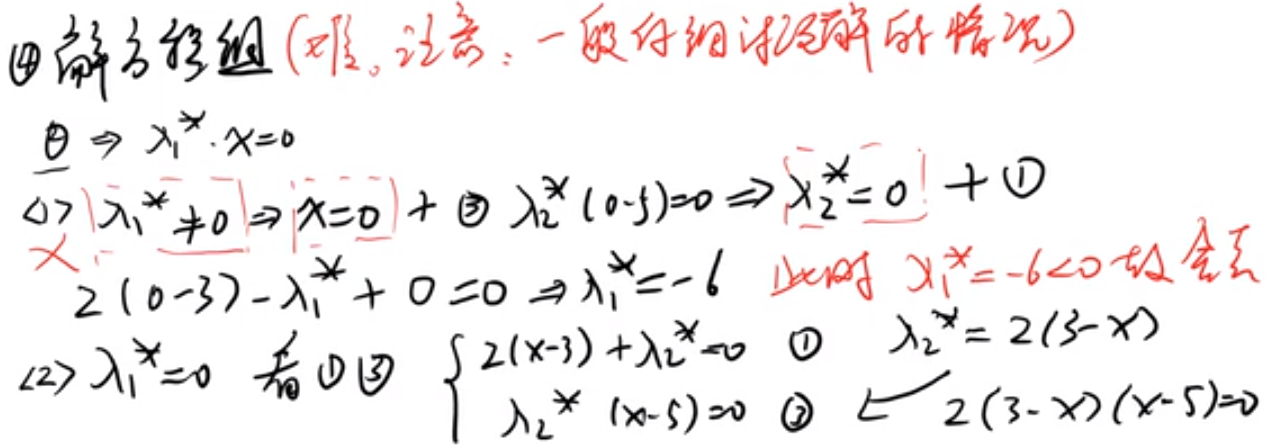 ④解方程组(难。注意:一般仔细讨论解的情况)
② ⇒ λ₁*·x=0
<1> λ₁*≠0 ⇒ x=0 + ③ λ₂*(0-5)=0 ⇒ λ₂*=0 + ①
× 2(0-3)-λ₁*+0=0 ⇒ λ₁*=-6 此时 λ₁*=-6<0 故舍去
<2> λ₁*=0 看①③ { 2(x-3)+λ₂*=0 ① λ₂*=2(3-x)
λ₂*(x-5)=0 ③ ← 2(3-x)(x-5)=0